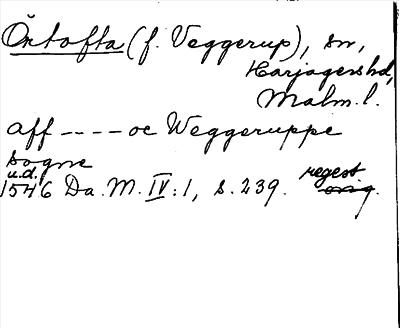 Örtofta (f. Veggerup), sn,
Harjagers hd,
Malm. l.
aff ---- oc Weggeruppe
sogne
u.d.
1546 Da. M. IV:1, s. 239. regest orig.